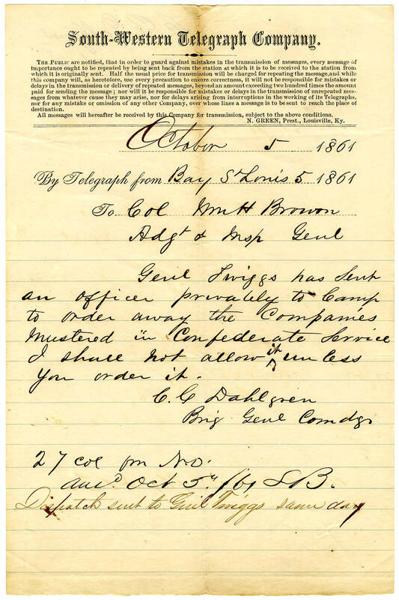 South-Western Telegraph Company.
THE PUBLIC are notified, that in order to guard against mistakes in the transmission of messages, every message of
importance ought to be repeated by being sent back from the station at which it is to be received to the station from
which it is originally sent. Half the usual price for transmission will be charged for repeating the message, and while
this company will, as heretofore, use every precaution to ensure correctness, it will not be responsible for mistakes or
delays in the transmission or delivery of repeated messages, beyond an amount exceeding two hundred times the amount
paid for sending the message; nor will it be responsible for mistakes or delays in the transmission of unrepeated mes-
sages from whatever cause they may arise, nor for delays arising from interruptions in the working of its Telegraphs,
nor for any mistake or omission of any other Company, over whose lines a message is to be sent to reach the place of
destination.
All messages will hereafter be received by this Company for transmission, subject to the above conditions.
N. GREEN, Prest., Louisville, Ky.
October 5 1861
By Telegraph from Bay St Louis 5 1861
To Col Wm H Brown
Adgt & Insp Genl
Genl Twiggs has sent
an officer privately to Camp
to order away the Companies
Mustered in Confederate Service
I shall not allow it unless
You order it.
C. G Dahlgren
Brig Genl Comdg
27 col fm N.O.
Oct 5" /61
Dispatch sent to Genl Twiggs same day